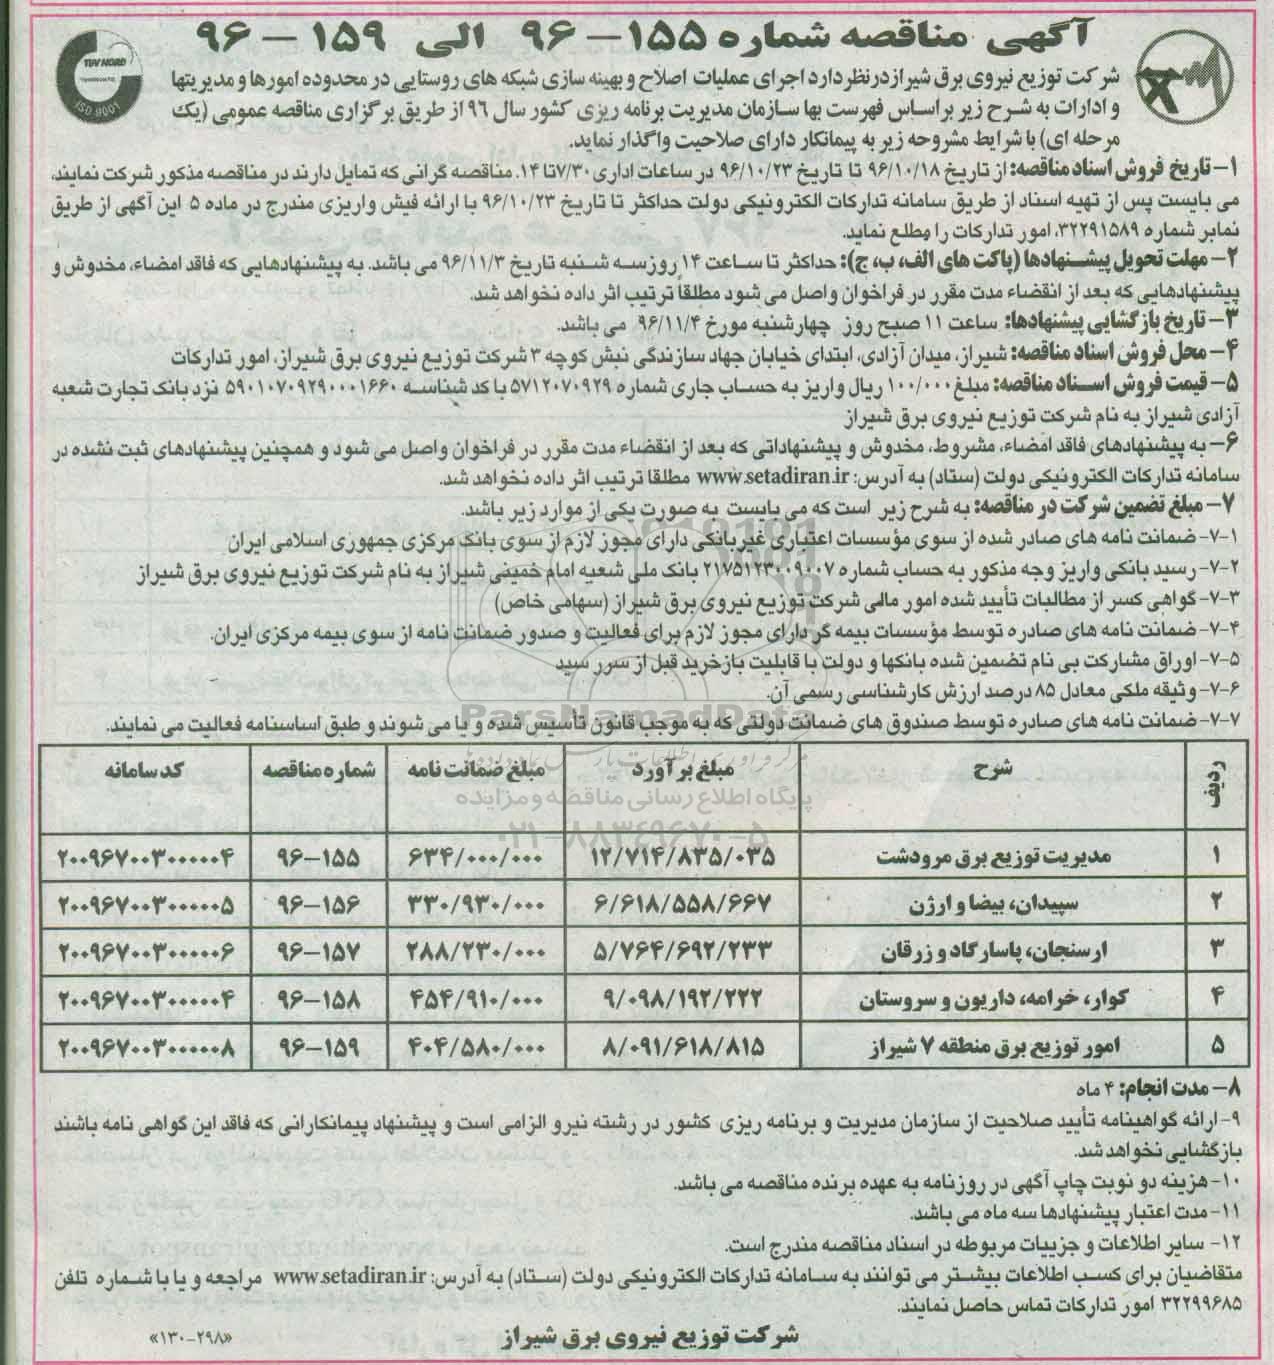 آگهی مناقصه شماره ۱۵۵-۹۶ الی ۱۵۹-۹۶
TÜV NORD
ISO 9001
شرکت توزیع نیروی برق شیراز درنظر دارد اجرای عملیات اصلاح و بهینه سازی شبکه های روستایی در محدوده امورها و مدیریتها
و ادارات به شرح زیر براساس فهرست بها سازمان مدیریت برنامه ریزی کشور سال ۹۶ از طریق برگزاری مناقصه عمومی (یک
مرحله ای) با شرایط مشروحه زیر به پیمانکار دارای صلاحیت واگذار نماید.
۱- تاریخ فروش اسناد مناقصه: از تاریخ ۹۶/۱۰/۱۸ تا تاریخ ۹۶/۱۰/۲۳ در ساعات اداری ۷/۳۰ تا ۱۴. مناقصه گرانی که تمایل دارند در مناقصه مذکور شرکت نمایند،
می بایست پس از تهیه اسناد از طریق سامانه تدارکات الکترونیکی دولت حداکثر تا تاریخ ۹۶/۱۰/۲۳ با ارائه فیش واریزی مندرج در ماده ۵ این آگهی از طریق
نمابر شماره ۳۲۲۹۱۵۸۹، امور تدارکات را مطلع نماید.
۲- مهلت تحویل پیشنهادها (پاکت های الف، ب، ج): حداکثر تا ساعت ۱۴ روز سه شنبه تاریخ ۹۶/۱۱/۳ می باشد. به پیشنهادهایی که فاقد امضاء، مخدوش و
پیشنهادهایی که بعد از انقضاء مدت مقرر در فراخوان واصل می شود مطلقاً ترتیب اثر داده نخواهد شد.
۳- تاریخ بازگشایی پیشنهادها: ساعت ۱۱ صبح روز چهارشنبه مورخ ۹۶/۱۱/۴ می باشد.
۴- محل فروش اسناد مناقصه: شیراز، میدان آزادی، ابتدای خیابان جهاد سازندگی نبش کوچه ۳ شرکت توزیع نیروی برق شیراز، امور تدارکات
۵- قیمت فروش اسناد مناقصه: مبلغ ۱۰۰/۰۰۰ ریال واریز به حساب جاری شماره ۵۷۱۲۰۷۰۹۲۹ با کد شناسه ۵۹۰۱۰۷۰۹۲۹۰۰۰۱۶۶۰ نزد بانک تجارت شعبه
آزادی شیراز به نام شرکت توزیع نیروی برق شیراز
۶- به پیشنهادهای فاقد امضاء، مشروط، مخدوش و پیشنهاداتی که بعد از انقضاء مدت مقرر در فراخوان واصل می شود و همچنین پیشنهادهای ثبت نشده در
سامانه تدارکات الکترونیکی دولت (ستاد) به آدرس: www.setadiran.ir مطلقا ترتیب اثر داده نخواهد شد.
۷- مبلغ تضمین شرکت در مناقصه: به شرح زیر است که می بایست به صورت یکی از موارد زیر باشد.
۷-۱- ضمانت نامه های صادر شده از سوی مؤسسات اعتباری غیربانکی دارای مجوز لازم از سوی بانک مرکزی جمهوری اسلامی ایران
۷-۲- رسید بانکی واریز وجه مذکور به حساب شماره ۲۱۷۵۱۲۳۰۰۹۰۰۷ بانک ملی شعبه امام خمینی شیراز به نام شرکت توزیع نیروی برق شیراز
۷-۳- گواهی کسر از مطالبات تأیید شده امور مالی شرکت توزیع نیروی برق شیراز (سهامی خاص)
۷-۴- ضمانت نامه های صادره توسط مؤسسات بیمه گر دارای مجوز لازم برای فعالیت و صدور ضمانت نامه از سوی بیمه مرکزی ایران.
۷-۵- اوراق مشارکت بی نام تضمین شده بانکها و دولت با قابلیت بازخرید قبل از سرر سید
۷-۶- وثیقه ملکی معادل ۸۵ درصد ارزش کارشناسی رسمی آن.
۷-۷- ضمانت نامه های صادره توسط صندوق های ضمانت دولتی که به موجب قانون تأسیس شده و یا می شوند و طبق اساسنامه فعالیت می نمایند.
ParsNamadData
پایگاه اطلاع رسانی مناقصه و مزایده
۰۲۱-۸۸۳۴۹۶۷۰-۵
ردیف شرح مبلغ برآورد مبلغ ضمانت نامه شماره مناقصه کد سامانه
۱ مدیریت توزیع برق مرودشت ۱۲/۷۱۴/۸۳۵/۰۳۵ ۶۳۴/۰۰۰/۰۰۰ ۹۶-۱۵۵ ۲۰۰۹۶۷۰۰۳۰۰۰۰۰۴
۲ سپیدان، بیضا و ارژن ۶/۶۱۸/۵۵۸/۶۶۷ ۳۳۰/۹۳۰/۰۰۰ ۹۶-۱۵۶ ۲۰۰۹۶۷۰۰۳۰۰۰۰۰۵
۳ ارسنجان، پاسارگاد و زرقان ۵/۷۶۴/۶۹۲/۲۳۳ ۲۸۸/۲۳۰/۰۰۰ ۹۶-۱۵۷ ۲۰۰۹۶۷۰۰۳۰۰۰۰۰۶
۴ کوار، خرامه، داریون و سروستان ۹/۰۹۸/۱۹۲/۲۲۲ ۴۵۴/۹۱۰/۰۰۰ ۹۶-۱۵۸ ۲۰۰۹۶۷۰۰۳۰۰۰۰۰۴
۵ امور توزیع برق منطقه ۷ شیراز ۸/۰۹۱/۶۱۸/۸۱۵ ۴۰۴/۵۸۰/۰۰۰ ۹۶-۱۵۹ ۲۰۰۹۶۷۰۰۳۰۰۰۰۰۸
۸- مدت انجام: ۴ ماه
۹- ارائه گواهینامه تأیید صلاحیت از سازمان مدیریت و برنامه ریزی کشور در رشته نیرو الزامی است و پیشنهاد پیمانکارانی که فاقد این گواهی نامه باشند
بازگشایی نخواهد شد.
۱۰- هزینه دو نوبت چاپ آگهی در روزنامه به عهده برنده مناقصه می باشد.
۱۱- مدت اعتبار پیشنهادها سه ماه می باشد.
۱۲- سایر اطلاعات و جزییات مربوطه در اسناد مناقصه مندرج است.
متقاضیان برای کسب اطلاعات بیشتر می توانند به سامانه تدارکات الکترونیکی دولت (ستاد) به آدرس: www.setadiran.ir مراجعه و یا با شماره تلفن
۳۲۲۹۹۶۸۵ امور تدارکات تماس حاصل نمایند.
شرکت توزیع نیروی برق شیراز
«۱۳۰-۲۹۸»